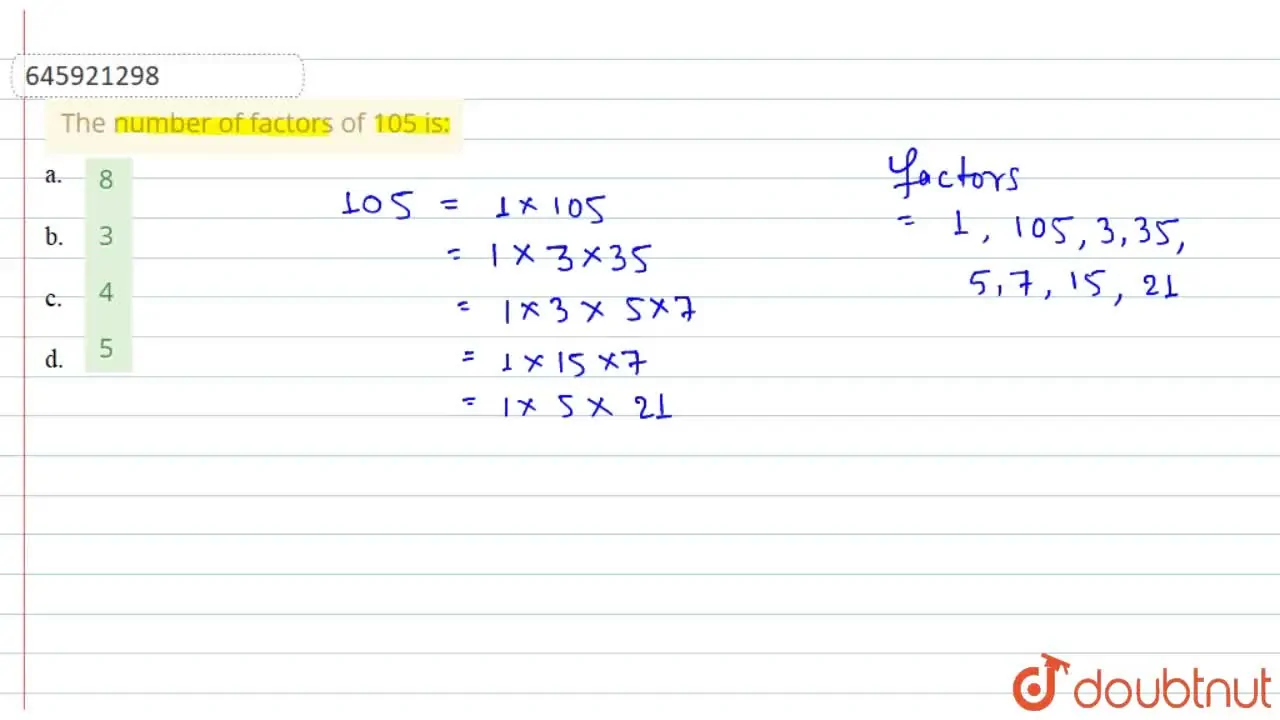 645921298
The number of factors of 105 is:
a. 8
b. 3
c. 4
d. 5
105 = 1 × 105
= 1 × 3 × 35
= 1 × 3 × 5 × 7
= 1 × 15 × 7
= 1 × 5 × 21
factors
= 1, 105, 3, 35,
5, 7, 15, 21
doubtnut